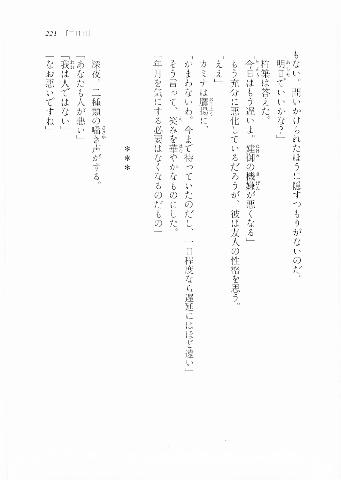 221 「二日目」
もない。問いかけられたほうに隠すつもりがないのだ。
「明日でいいかな?」
柊筆は答えた。
「今日はもう遅いよ。建御の機嫌が悪くなる」
もう充分に悪化しているだろうが、彼は友人の性格を思う。
「ええ」
カミナは鷹揚に、
「かまわないわ。今まで待っていたのだし、一日程度なら遅延にはほど遠い」
そう言って、笑みを華やかなものにした。
「年月を気にする必要はなくなるのだもの」
***
深夜、二種類の囁き声がする。
「あなたも人が悪い」
「我は人ではない」
「なお悪いですね」